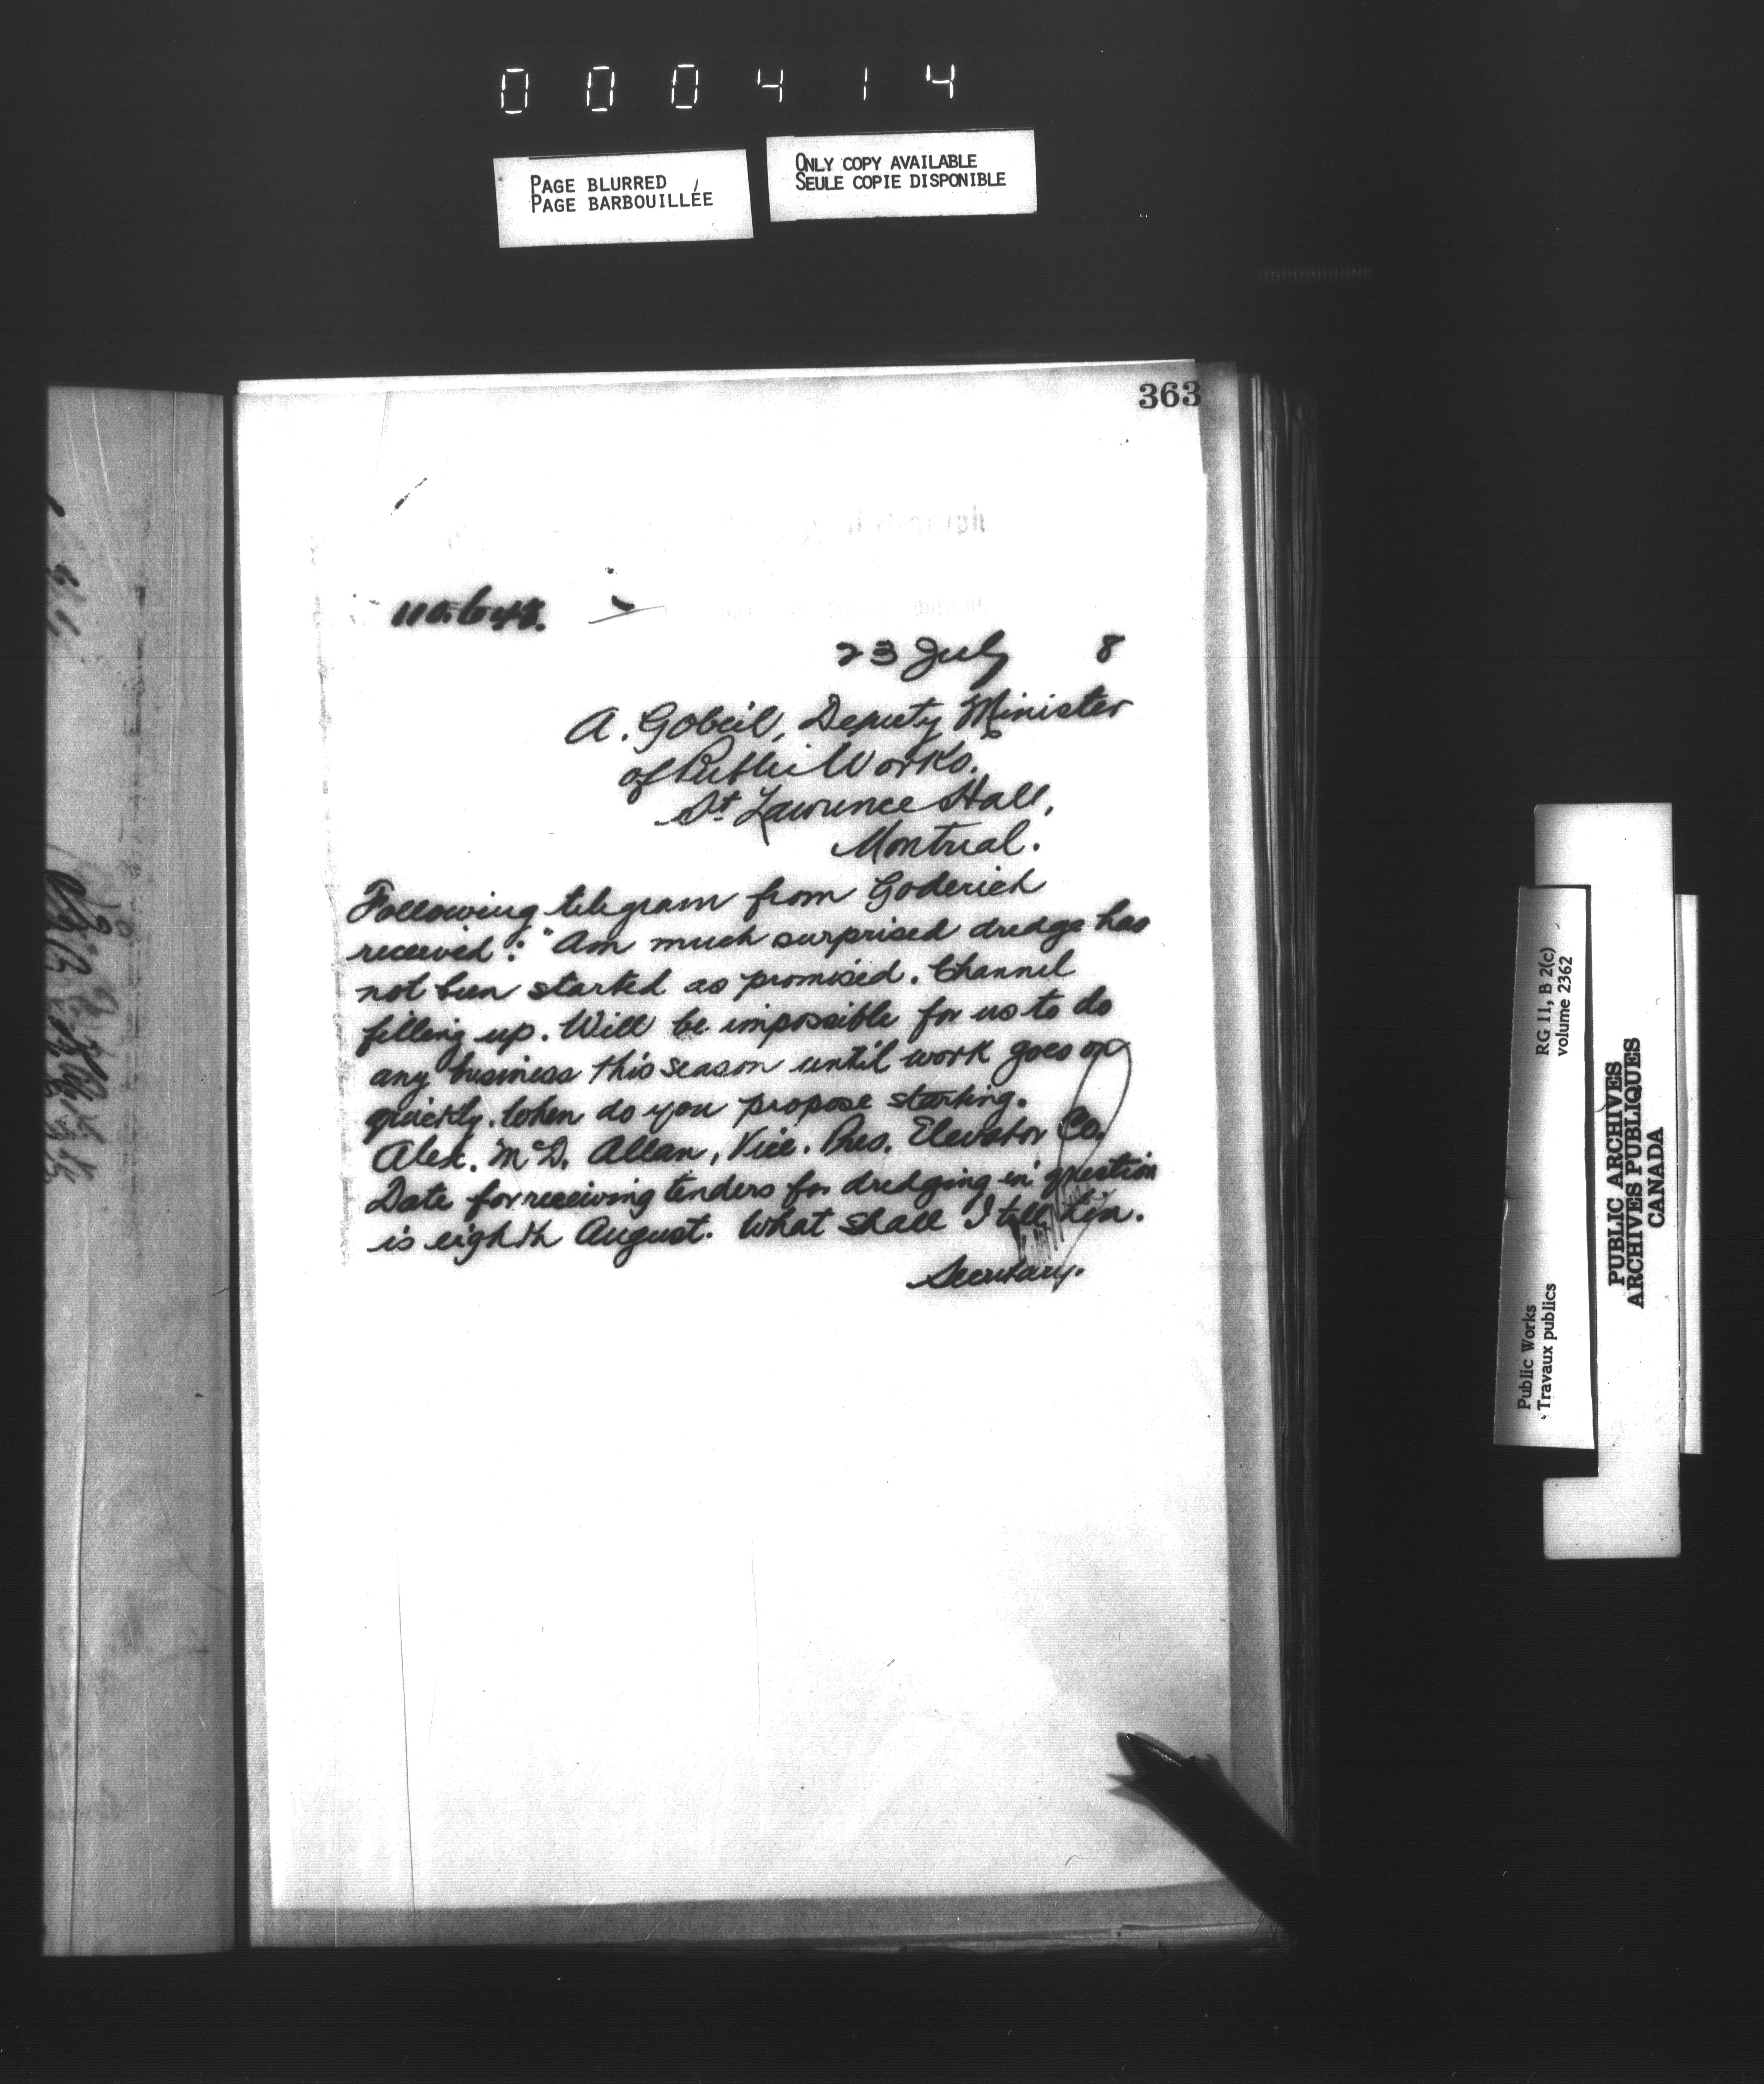 000414
PAGE BLURRED
PAGE BARBOUILLÉE
ONLY COPY AVAILABLE
SEULE COPIE DISPONIBLE
363
23 July 8
A. Gobeil, Deputy Minister
of Public Works.
St. Lawrence Hall,
Montreal.
Following telegram from Goderich
received: "Am much surprised dredge has
not been started as promised. Channel
filling up. Will be impossible for us to do
any business this season until work goes on
quickly. When do you propose starting.
Alex. McD. Allan, Vice. Pres. Elevator Co.
Date for receiving tenders for dredging in question
is eighth August. What shall I tell him.
Secretary.
Public Works
Travaux publics
RG 11, B 2(c)
volume 2362
PUBLIC ARCHIVES
ARCHIVES PUBLIQUES
CANADA